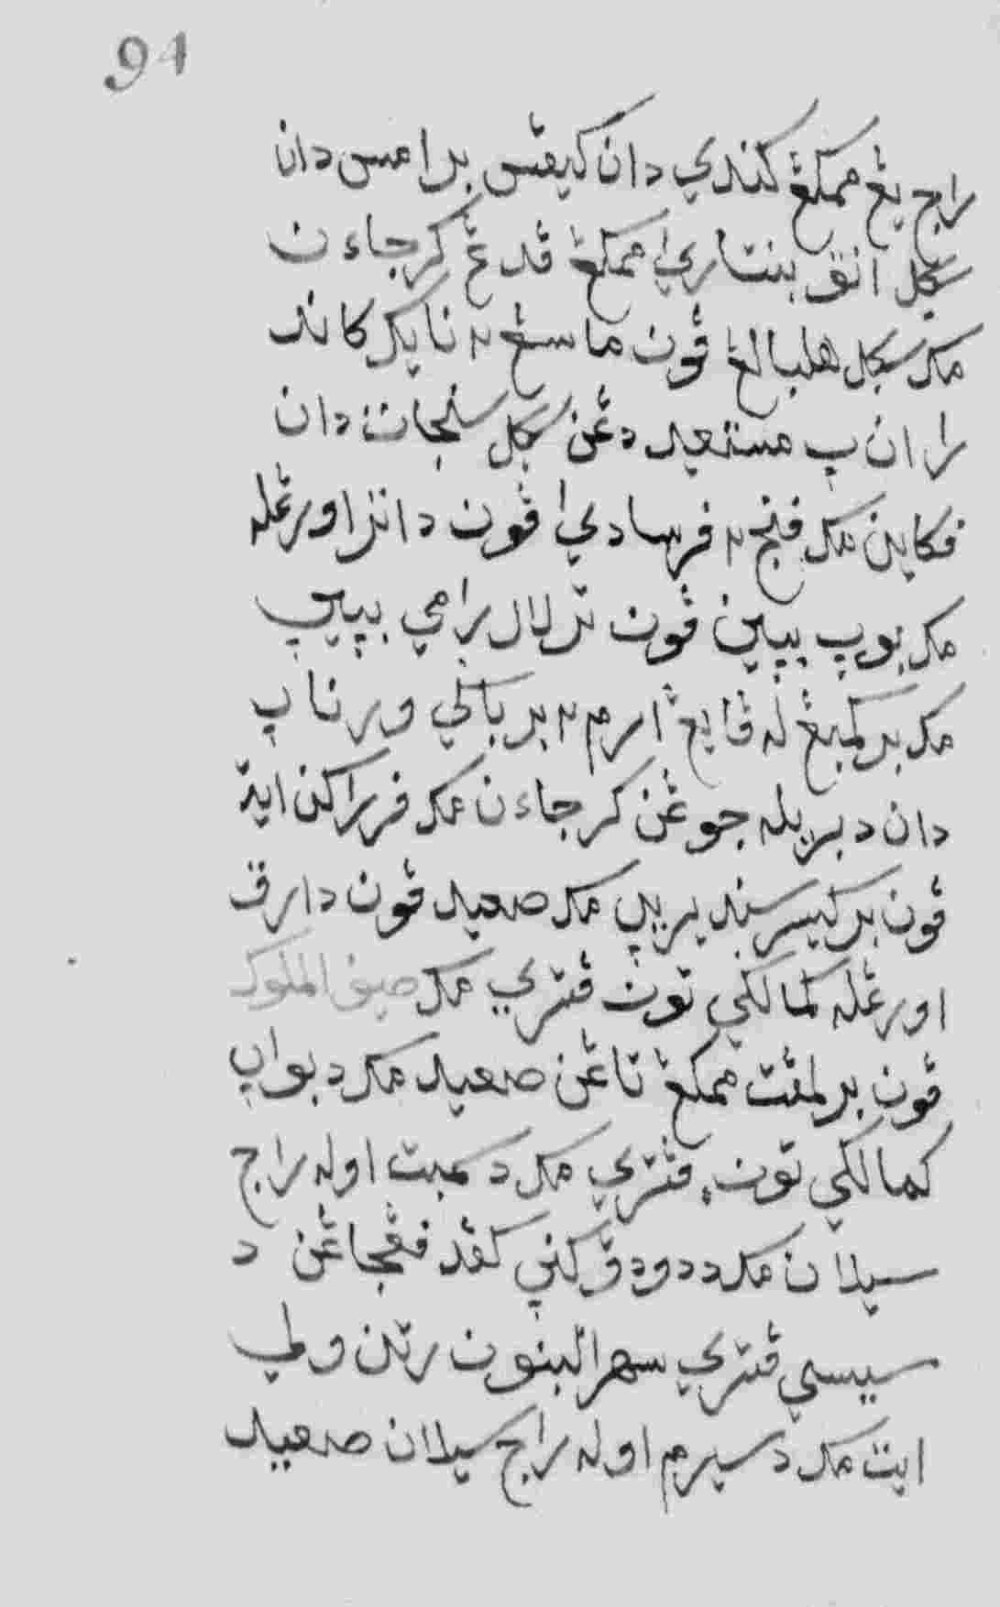 91
راج يڠ ممكڠ كندي دان كيڤس بر امس دان
سكل انق بنتار٢ ممكڠ ڤدڠ كرجاءن
مك سكل هلبالڠ ڤون ماسڠ٢ نايك كاند
راان پ مستعيد دڠن سكل سنجات دان
فكاين مك فنج٢ فرسادي٢ ڤون دانتر اورڠله
مك بوپ بپين ڤون ترلال رامي بپيپ
مك بركمبڠ له ڤايڠ ارم٢ بر باڬي ورناپ
دان دبريله جوڠن كرجاءن مك فرراكن ايت
ڤون بركيسر سنديريپ مك صعيد ڤون دارق
اورڠله كمالكي تون ڤتري مك صيف الملوك
ڤون برلمڤت ممكڠ تاڠن صعيد مك دبواپ
كمالكي تون ڤتري مك دسمبت اوله راج
سيلان مك ددودوقكنپ كڤد ففجاڠن د
سيسي ڤتري سهرالبنون رتن ولي
ايت مك دسيرم اوله راج سيلان صعيد